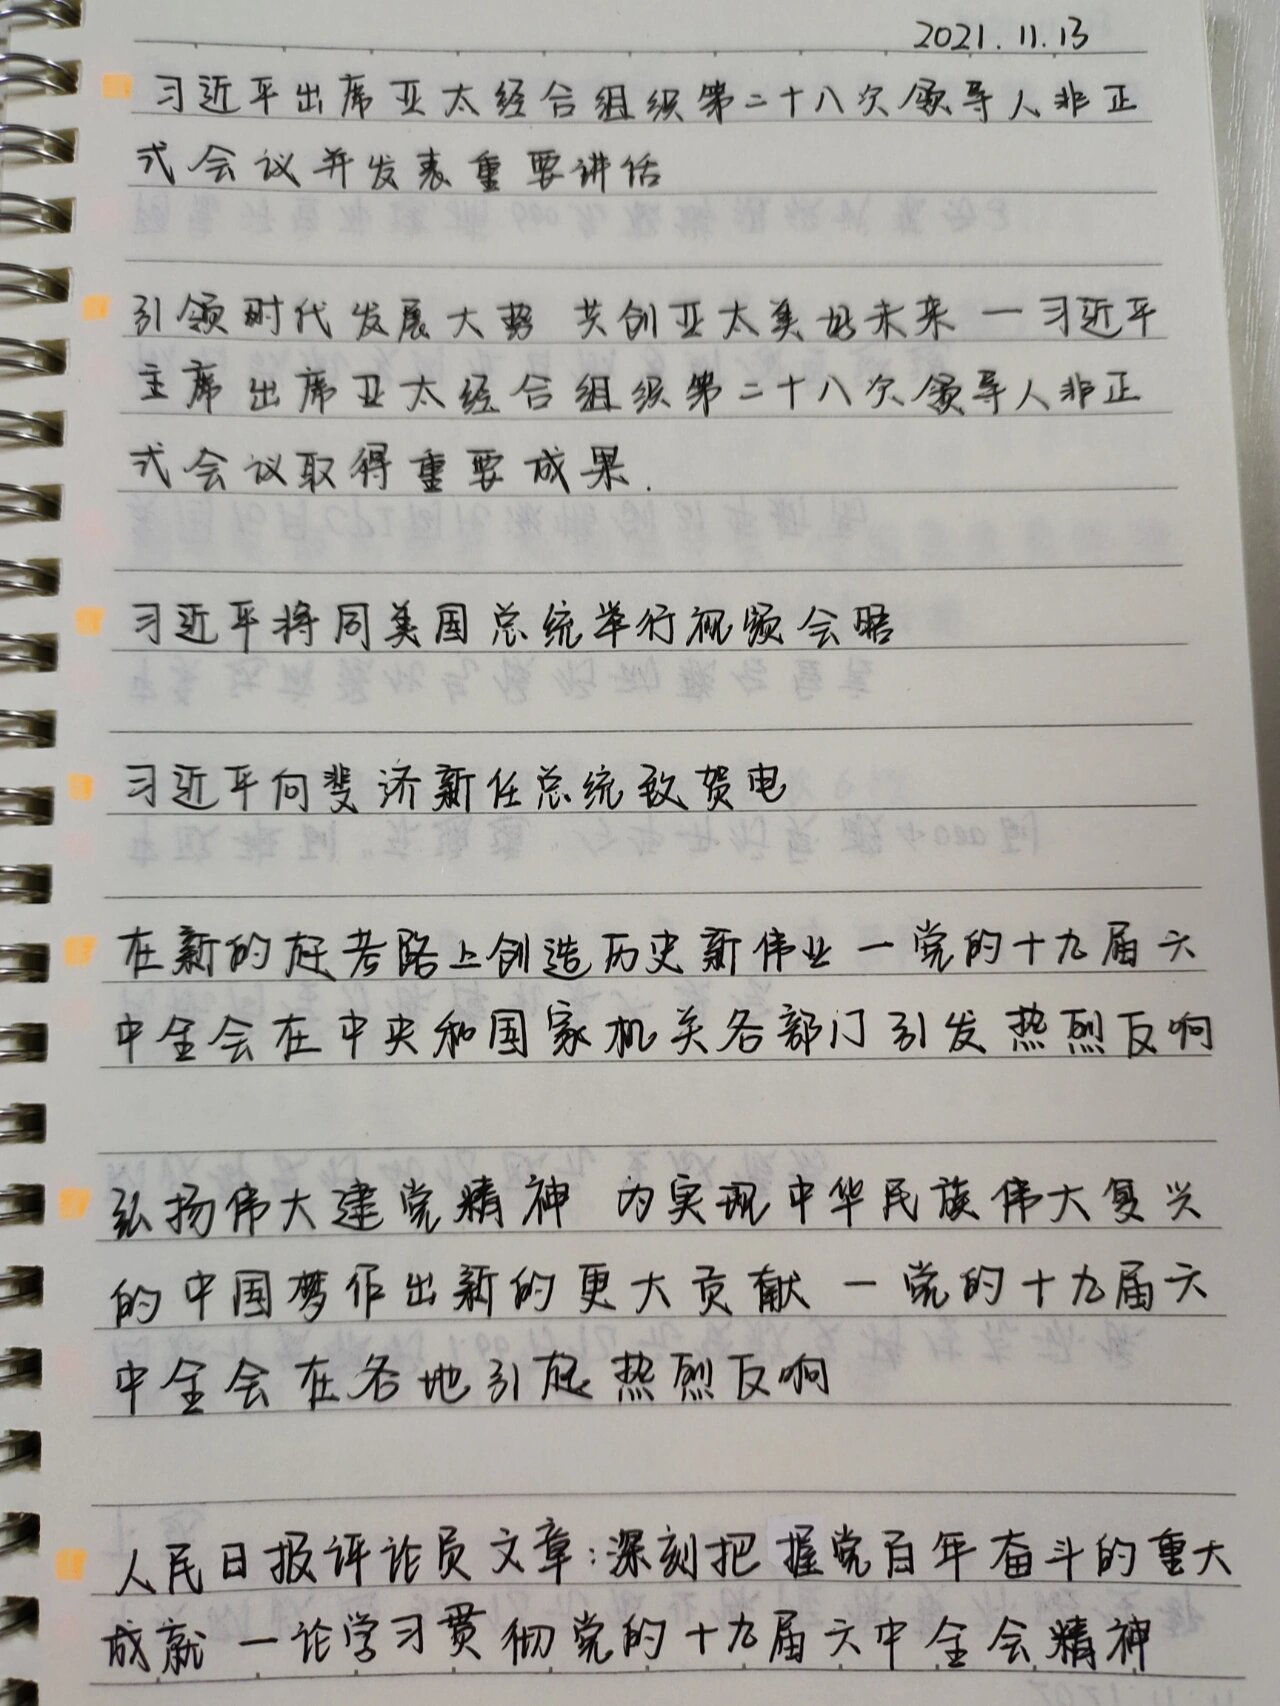 2021.11.13
习近平出席亚太经合组织第二十八次领导人非正
式会议并发表重要讲话
引领时代发展大势 共创亚太美好未来一习近平
主席出席亚太经合组织第二十八次领导人非正
式会议取得重要成果.
习近平将同美国总统举行视频会晤
习近平向斐济新任总统致贺电
在新的赶考路上创造历史新伟业一党的十九届六
中全会在中央和国家机关各部门引发热烈反响
弘扬伟大建党精神 为实现中华民族伟大复兴
的中国梦作出新的更大贡献一党的十九届六
中全会在各地引起热烈反响
人民日报评论员文章:深刻把握党百年奋斗的重大
成就一论学习贯彻党的十九届六中全会精神